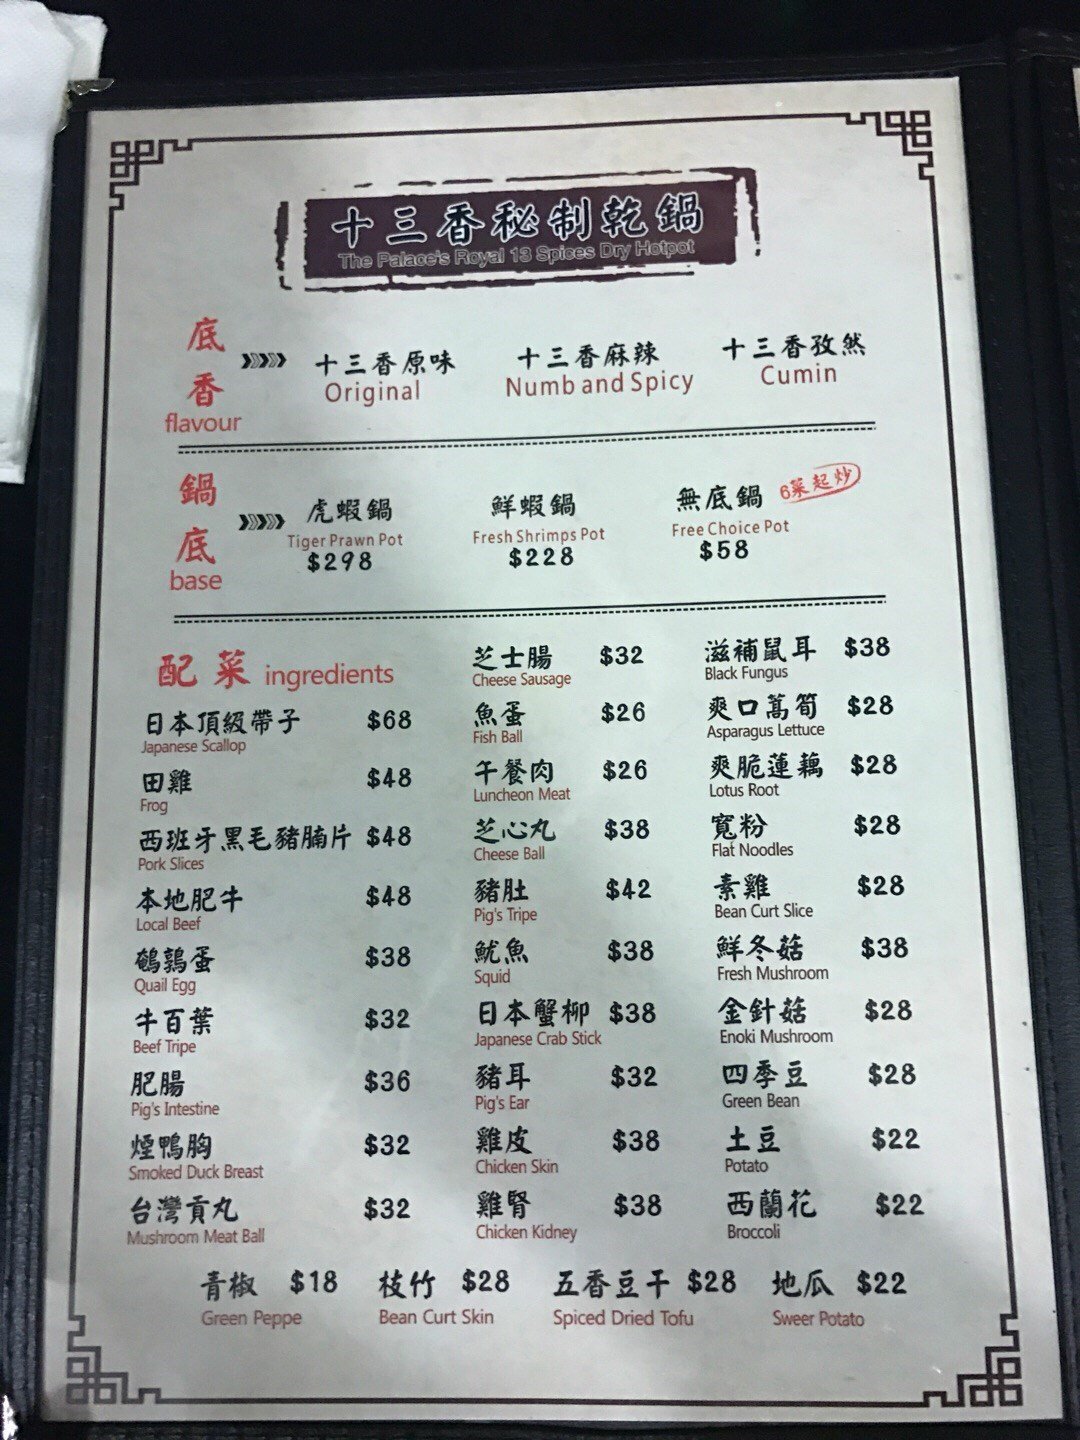 十三香秘制乾鍋
The Palace's Royal 13 Spices Dry Hotpot
底香
flavour
十三香原味 十三香麻辣 十三香孜然
Original Numb and Spicy Cumin
鍋底
base
虎蝦鍋 鮮蝦鍋 無底鍋 6菜起炒
Tiger Prawn Pot Fresh Shrimps Pot Free Choice Pot
$298 $228 $58
配菜 ingredients
日本頂級帶子 $68
Japanese Scallop
田雞 $48
Frog
西班牙黑毛豬腩片 $48
Pork Slices
本地肥牛 $48
Local Beef
鵪鶉蛋 $38
Quail Egg
牛百葉 $32
Beef Tripe
肥腸 $36
Pig's Intestine
煙鴨胸 $32
Smoked Duck Breast
台灣貢丸 $32
Mushroom Meat Ball
芝士腸 $32
Cheese Sausage
魚蛋 $26
Fish Ball
午餐肉 $26
Luncheon Meat
芝心丸 $38
Cheese Ball
豬肚 $42
Pig's Tripe
魷魚 $38
Squid
日本蟹柳 $38
Japanese Crab Stick
豬耳 $32
Pig's Ear
雞皮 $38
Chicken Skin
雞腎 $38
Chicken Kidney
滋補鼠耳 $38
Black Fungus
爽口萵筍 $28
Asparagus Lettuce
爽脆蓮藕 $28
Lotus Root
寬粉 $28
Flat Noodles
素雞 $28
Bean Curt Slice
鮮冬菇 $38
Fresh Mushroom
金針菇 $28
Enoki Mushroom
四季豆 $28
Green Bean
土豆 $22
Potato
西蘭花 $22
Broccoli
青椒 $18 枝竹 $28 五香豆干 $28 地瓜 $22
Green Peppe Bean Curt Skin Spiced Dried Tofu Sweer Potato